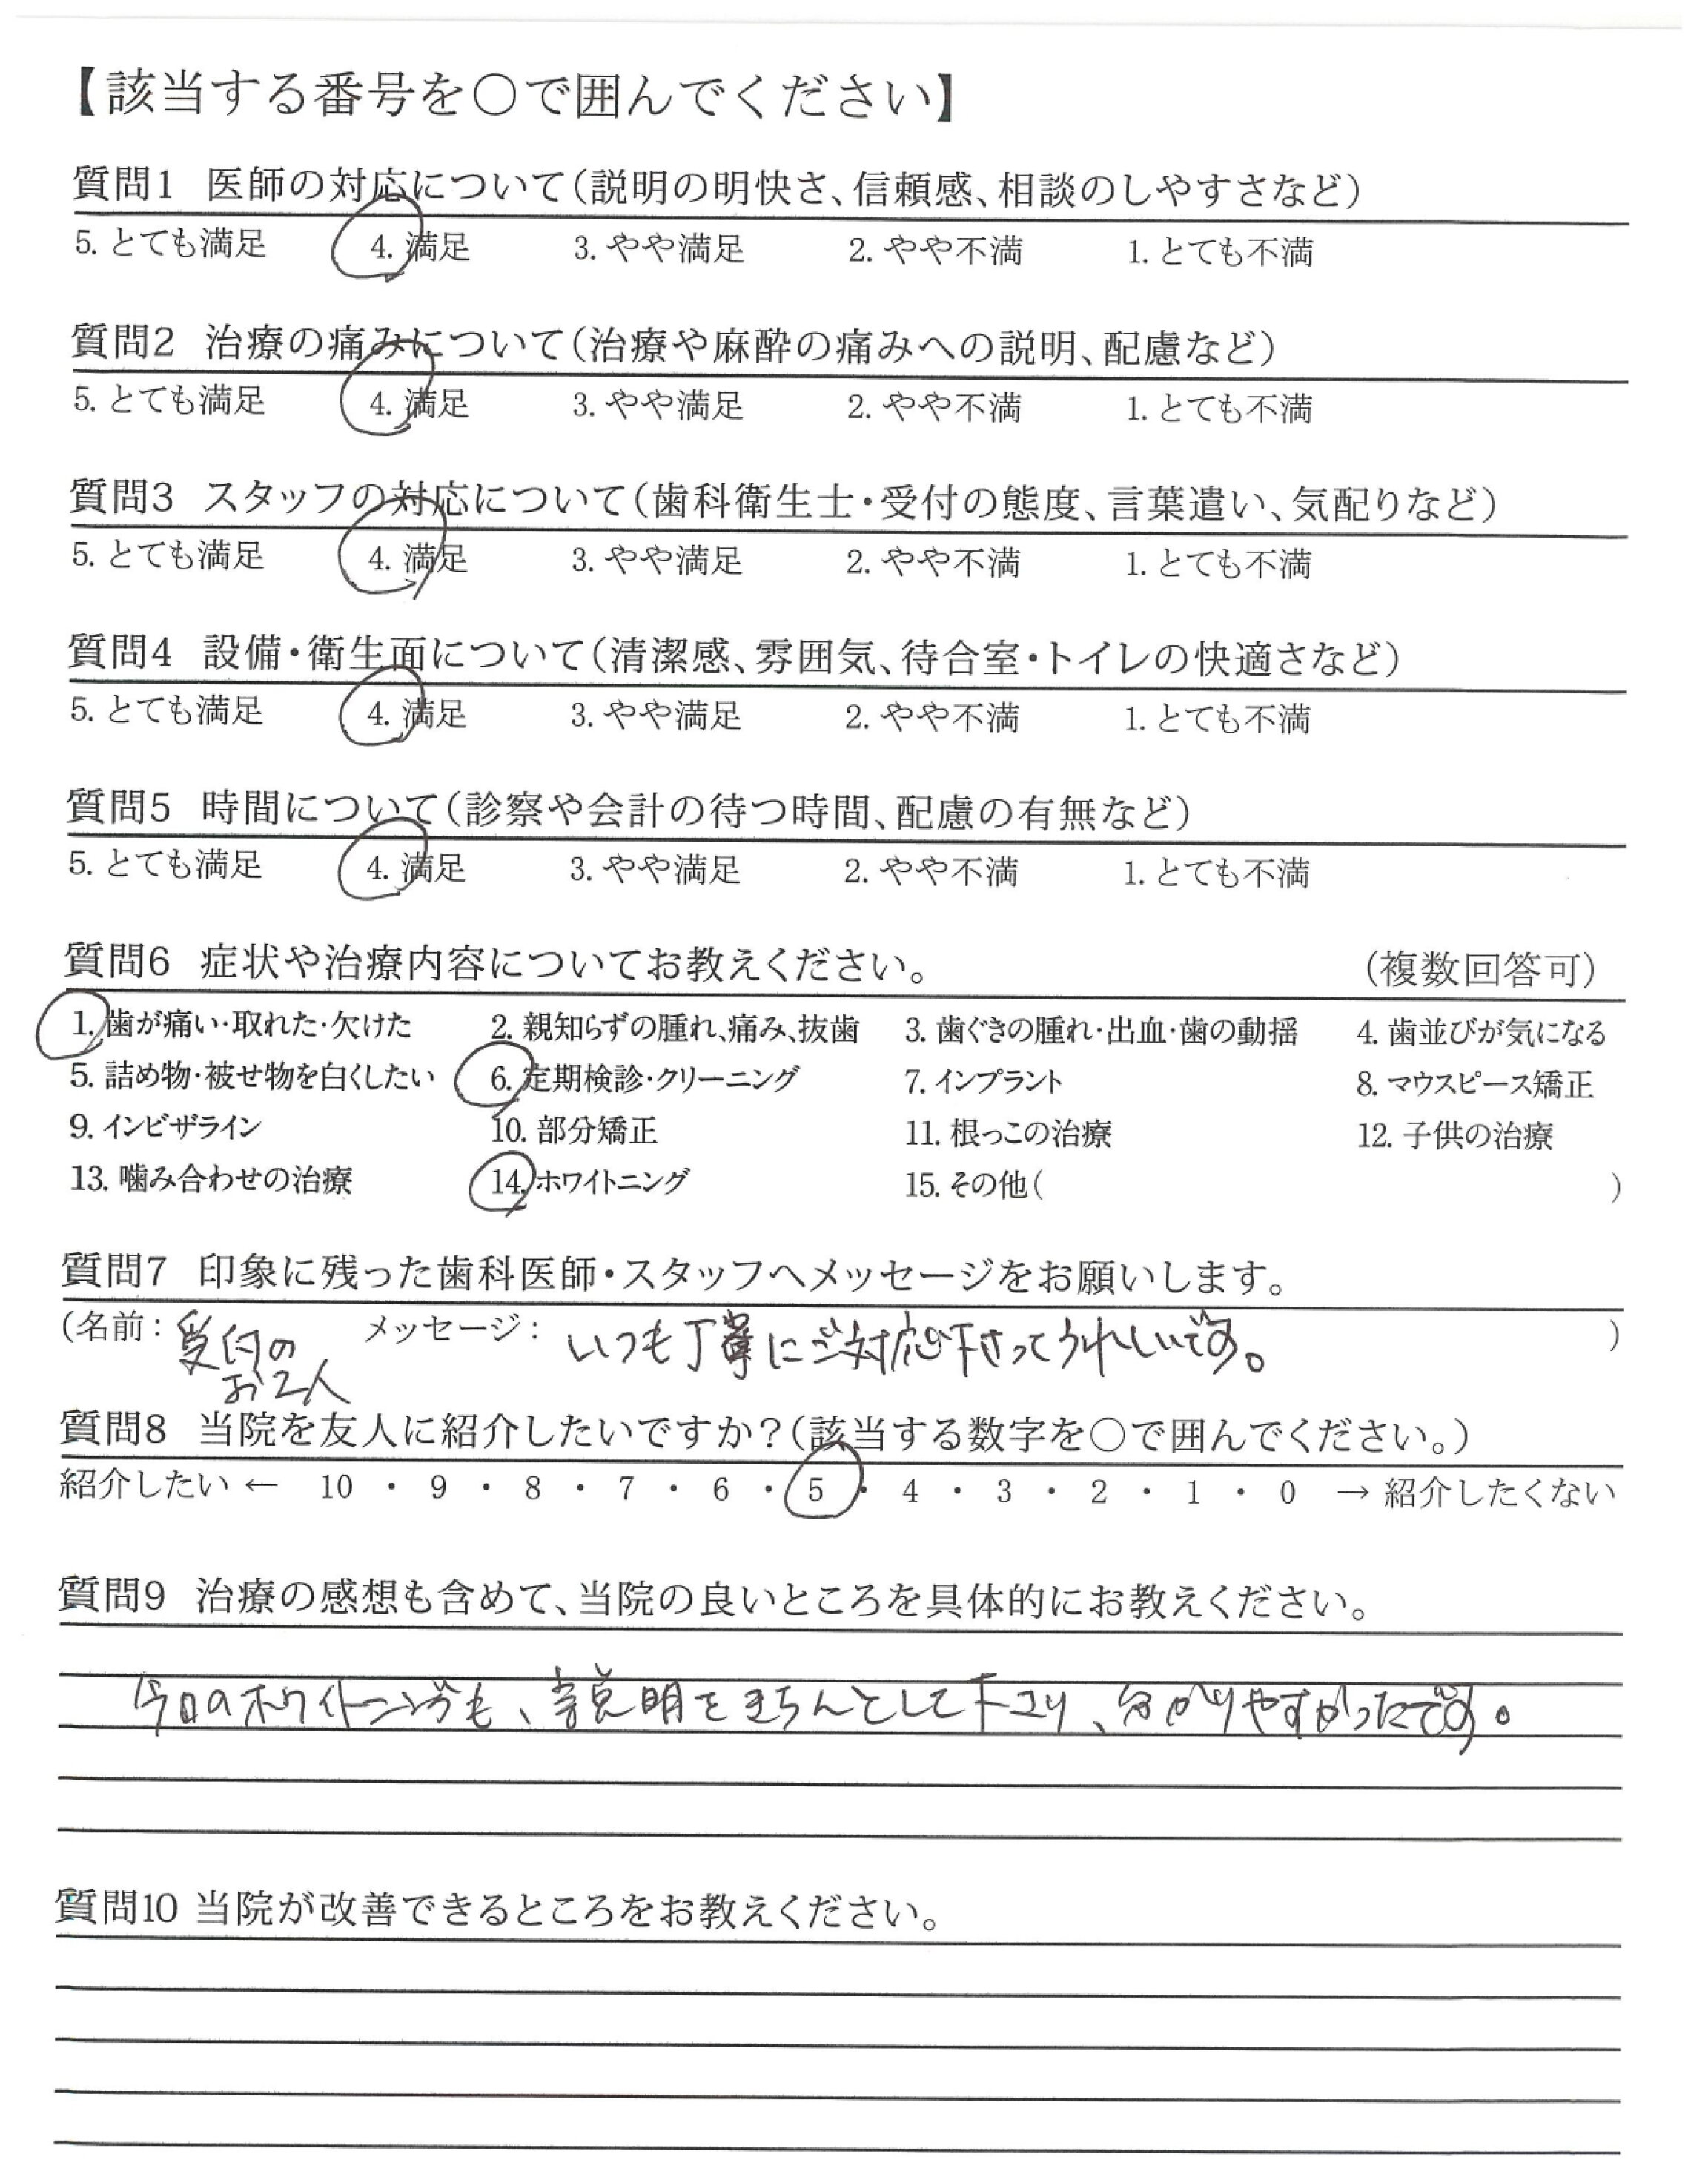 【該当する番号を○で囲んでください】
質問1 医師の対応について(説明の明快さ、信頼感、相談のしやすさなど)
5. とても満足 4. 満足 3. やや満足 2. やや不満 1. とても不満
質問2 治療の痛みについて(治療や麻酔の痛みへの説明、配慮など)
5. とても満足 4. 満足 3. やや満足 2. やや不満 1. とても不満
質問3 スタッフの対応について(歯科衛生士・受付の態度、言葉遣い、気配りなど)
5. とても満足 4. 満足 3. やや満足 2. やや不満 1. とても不満
質問4 設備・衛生面について(清潔感、雰囲気、待合室・トイレの快適さなど)
5. とても満足 4. 満足 3. やや満足 2. やや不満 1. とても不満
質問5 時間について(診察や会計の待つ時間、配慮の有無など)
5. とても満足 4. 満足 3. やや満足 2. やや不満 1. とても不満
質問6 症状や治療内容についてお教えください。 (複数回答可)
1. 歯が痛い・取れた・欠けた 2. 親知らずの腫れ、痛み、抜歯 3. 歯ぐきの腫れ・出血・歯の動揺 4. 歯並びが気になる
5. 詰め物・被せ物を白くしたい 6. 定期検診・クリーニング 7. インプラント 8. マウスピース矯正
9. インビザライン 10. 部分矯正 11. 根っこの治療 12. 子供の治療
13. 噛み合わせの治療 14. ホワイトニング 15. その他( )
質問7 印象に残った歯科医師・スタッフへメッセージをお願いします。
(名前: 受付の メッセージ: いつも丁寧にご対応下さってうれしいです。 )
お2人
質問8 当院を友人に紹介したいですか?(該当する数字を○で囲んでください。)
紹介したい ← 10 ・ 9 ・ 8 ・ 7 ・ 6 ・ 5 ・ 4 ・ 3 ・ 2 ・ 1 ・ 0 → 紹介したくない
質問9 治療の感想も含めて、当院の良いところを具体的にお教えください。
今日のホワイトニングも、説明をきちんとして下さり、分かりやすかったです。
質問10 当院が改善できるところをお教えください。